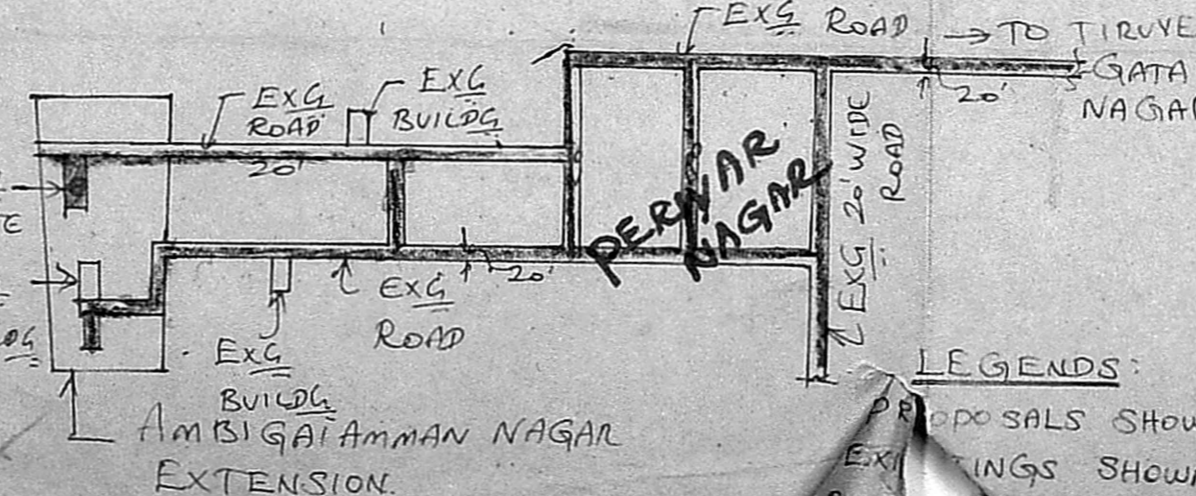 EXG ROAD
→ TO TIRUVE
GATA
NAGAR
20'
EXG
ROAD
EXG
BUILDG
20'
PERIYAR
NAGAR
EXG 20' WIDE
ROAD
20'
EXG
ROAD
EXG
BUILDG
AMBIGAI AMMAN NAGAR
EXTENSION.
LEGENDS:
PROPOSALS SHOW
EXI TINGS SHOW